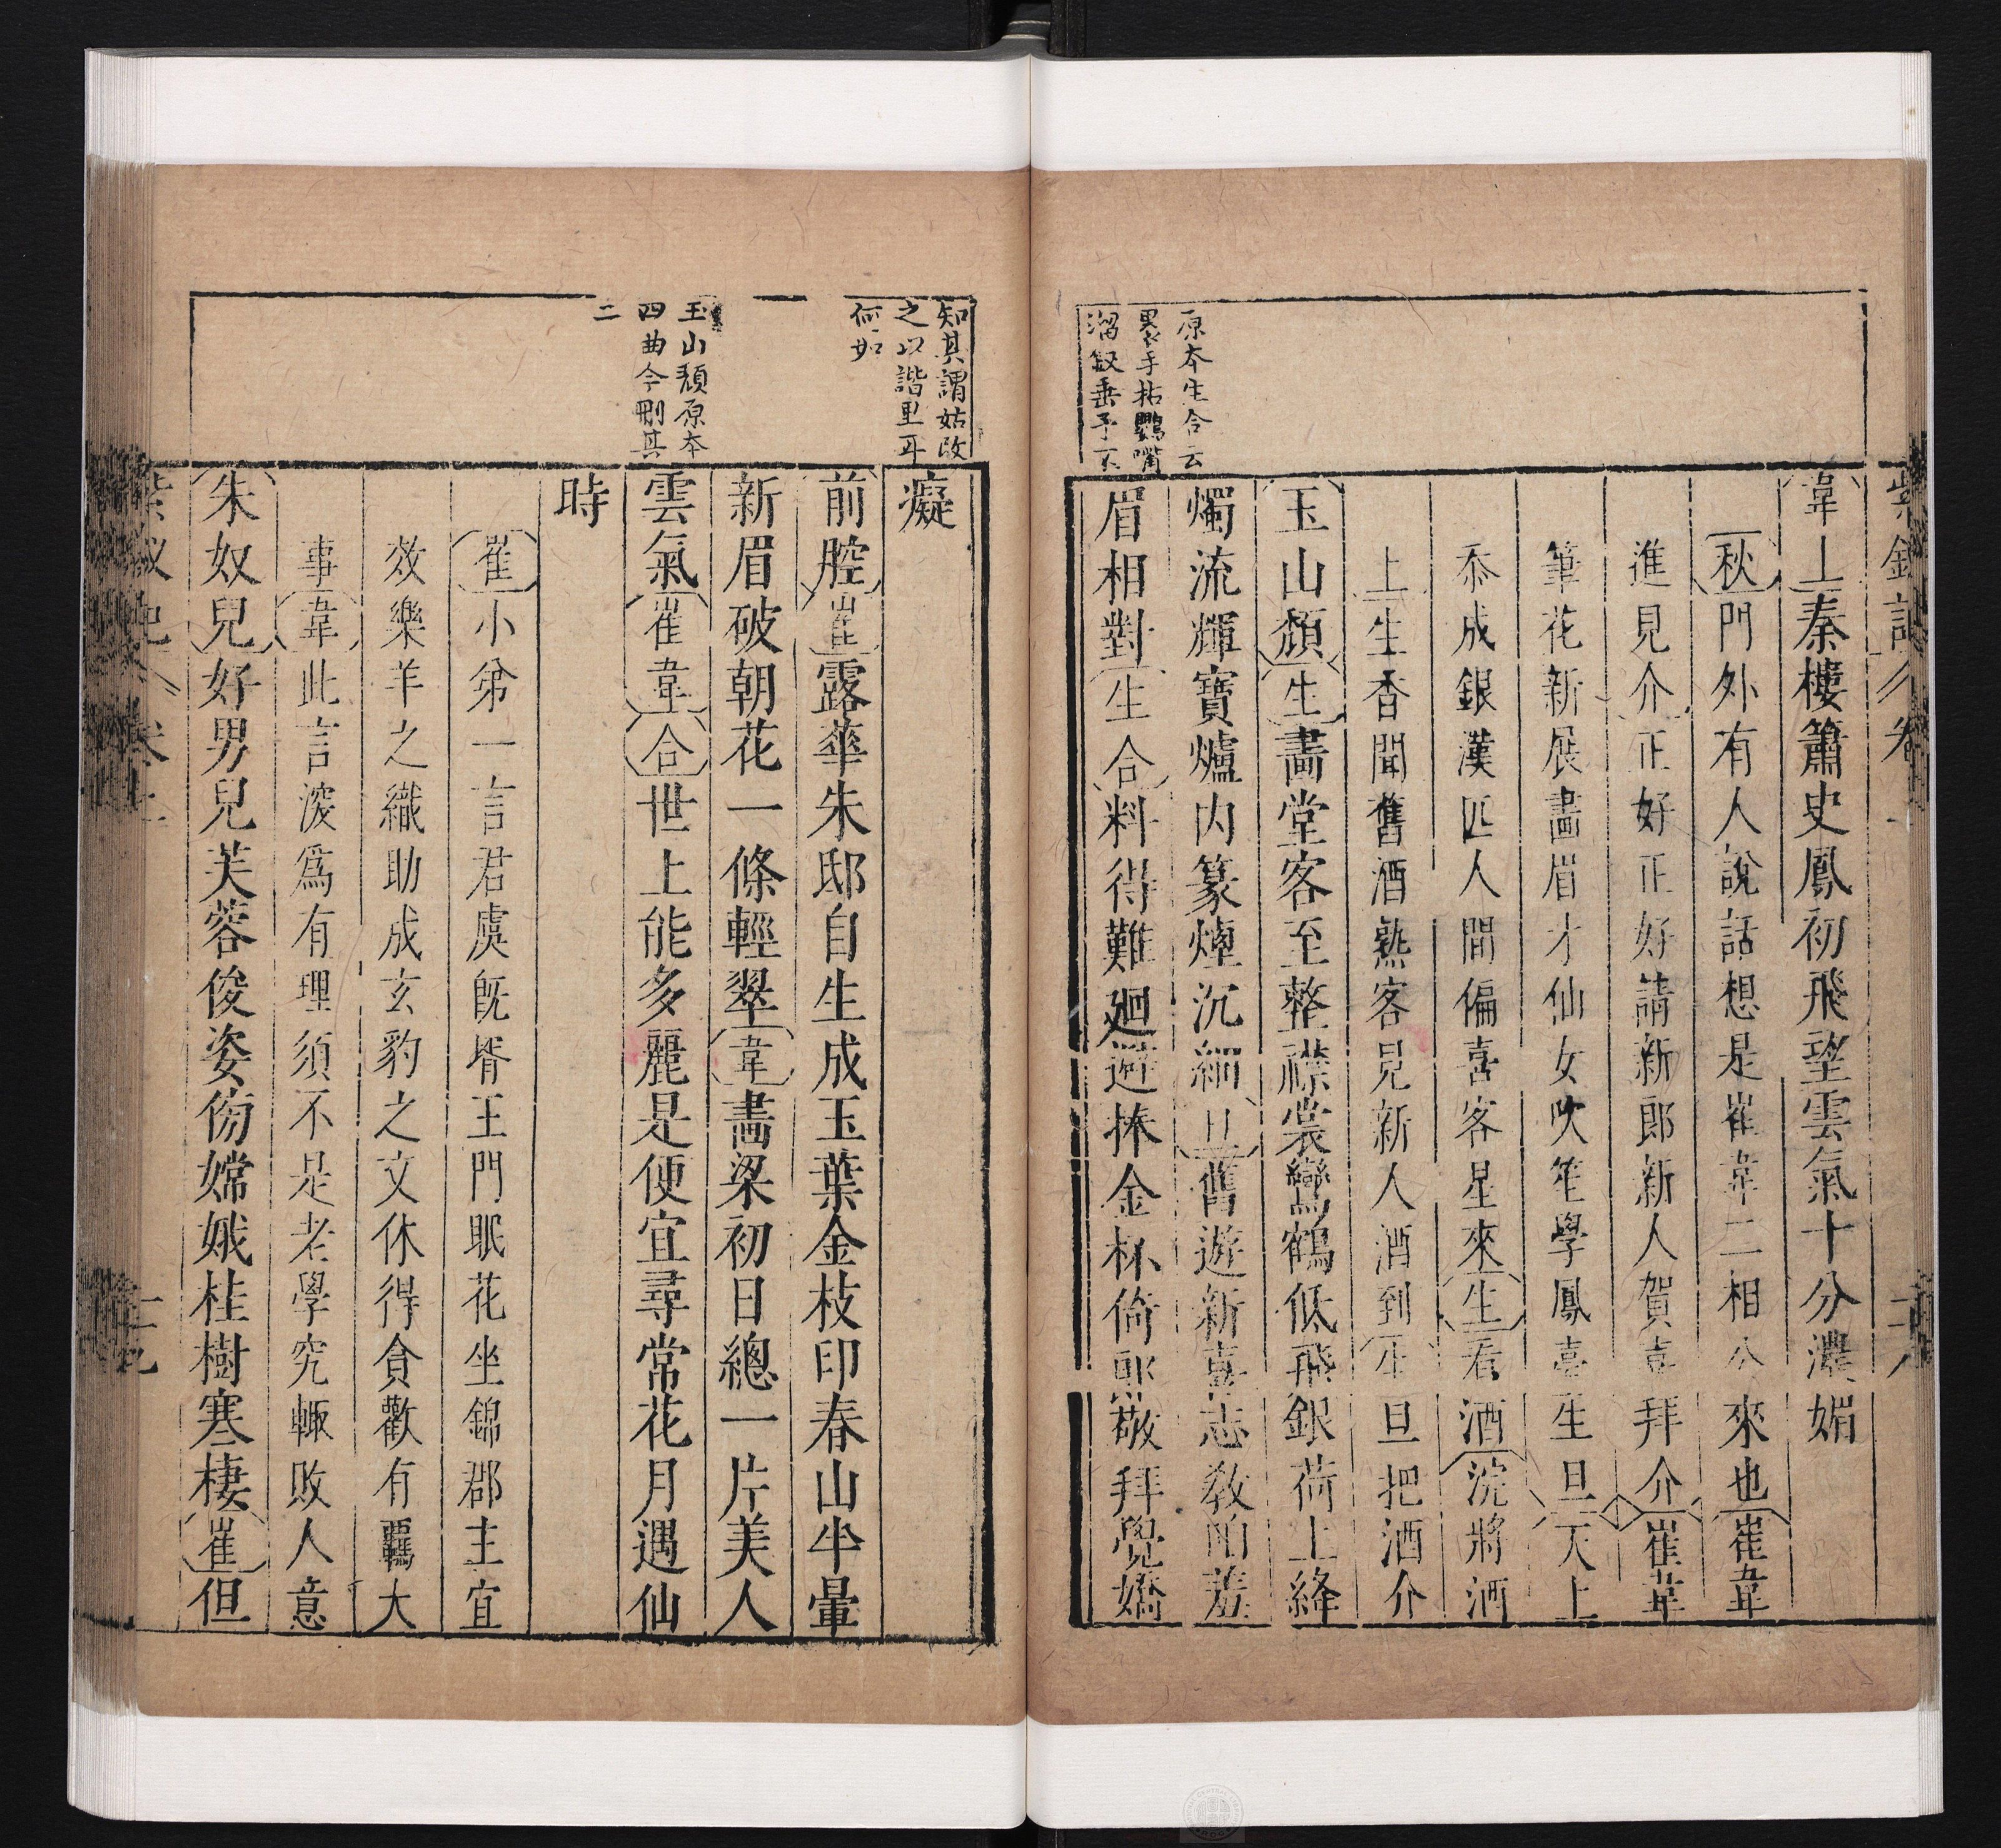 紫釵記 卷上 二十八
原本生合云
裏手拈鸚嘴
溜釵垂予不
韋上秦樓簫史鳳初飛望雲氣十分濃媚
秋門外有人說話想是崔韋二相公來也崔韋
進見介正好正好請新郎新人賀喜拜介崔韋
筆花新展畫眉才仙女吹笙學鳳臺生旦天上
忝成銀漢匹人間偏喜客星來生看酒浣將酒
上生香聞舊酒熟客見新人酒到生旦把酒介
玉山頹生畫堂客至整襟裳鸞鶴低飛銀荷上絳
燭流輝寶爐內篆煙沉細旦舊遊新喜恁教陌羞
眉相對生合料得難廻避捧金杯倚郎敬拜覺嬌
知其謂姑改
之以諧里耳
何如
玉山頹原本
四曲今刪其
二
癡
前腔崔露華朱邸自生成玉葉金枝印春山半暈
新眉破朝花一條輕翠韋畫梁初日總一片美人
雲氣崔韋合世上能多麗是便宜尋常花月遇仙
時
崔小弟一言君虞既壻王門眠花坐錦郡主宜
效樂羊之織助成玄豹之文休得貪歡有羈大
事韋此言深爲有理須不是老學究輙敗人意
朱奴兒好男兒芙蓉俊姿傍嫦娥桂樹寒棲崔但
紫釵記 卷上 二十九